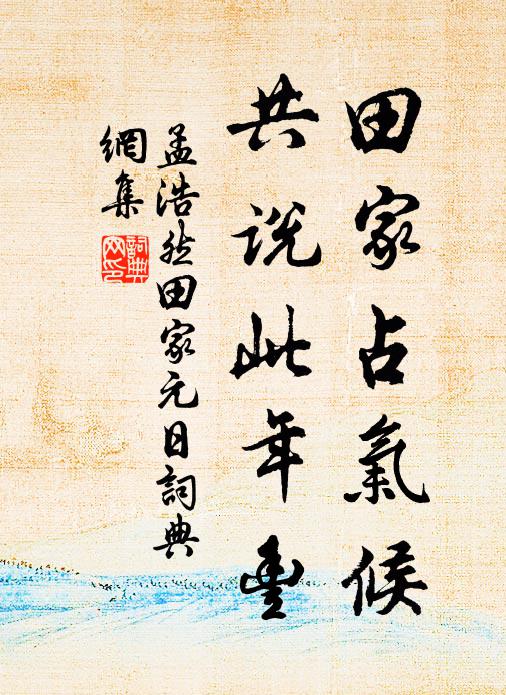 田家占氣候
共說此年豐
孟浩然田家元日詞典
網集
詞典
网印